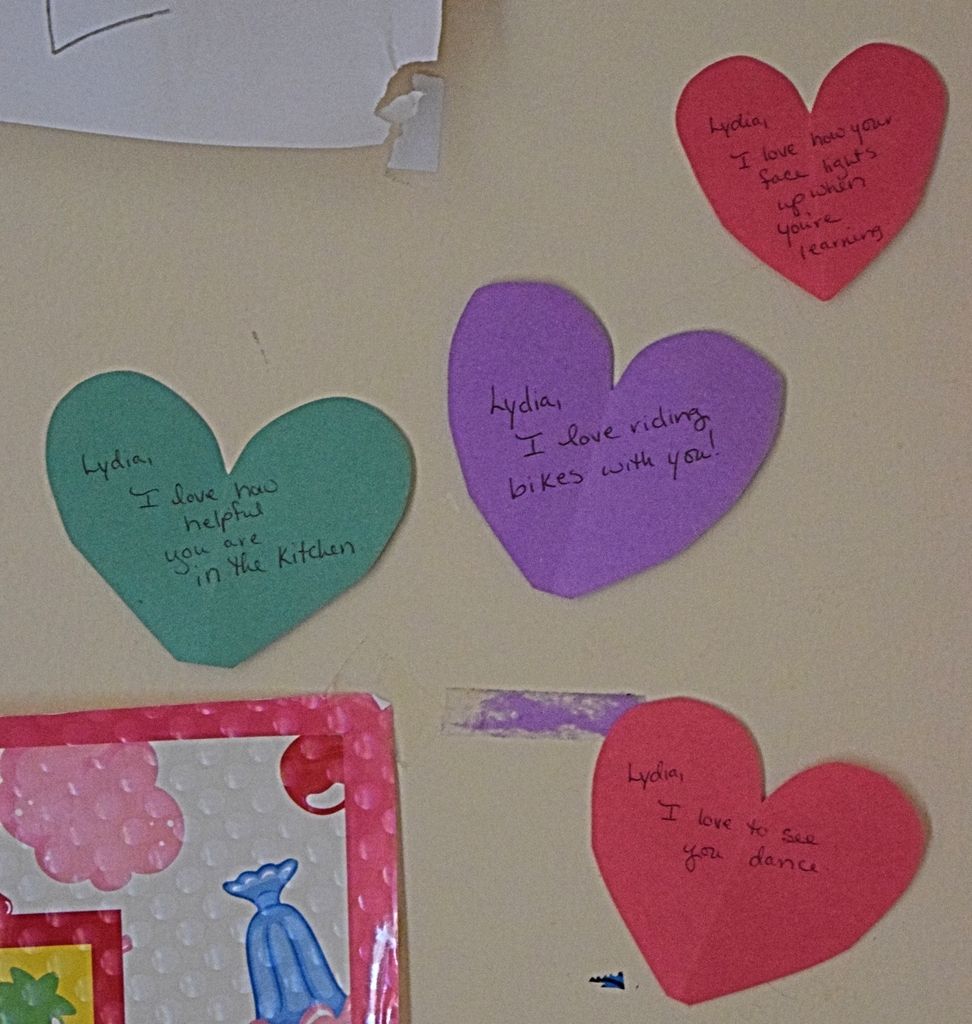 Lydia,
I love how your
face lights
up when
you're
learning.
Lydia,
I love riding
bikes with you!
Lydia,
I love how
helpful
you are
in the kitchen
Lydia,
I love to see
you dance